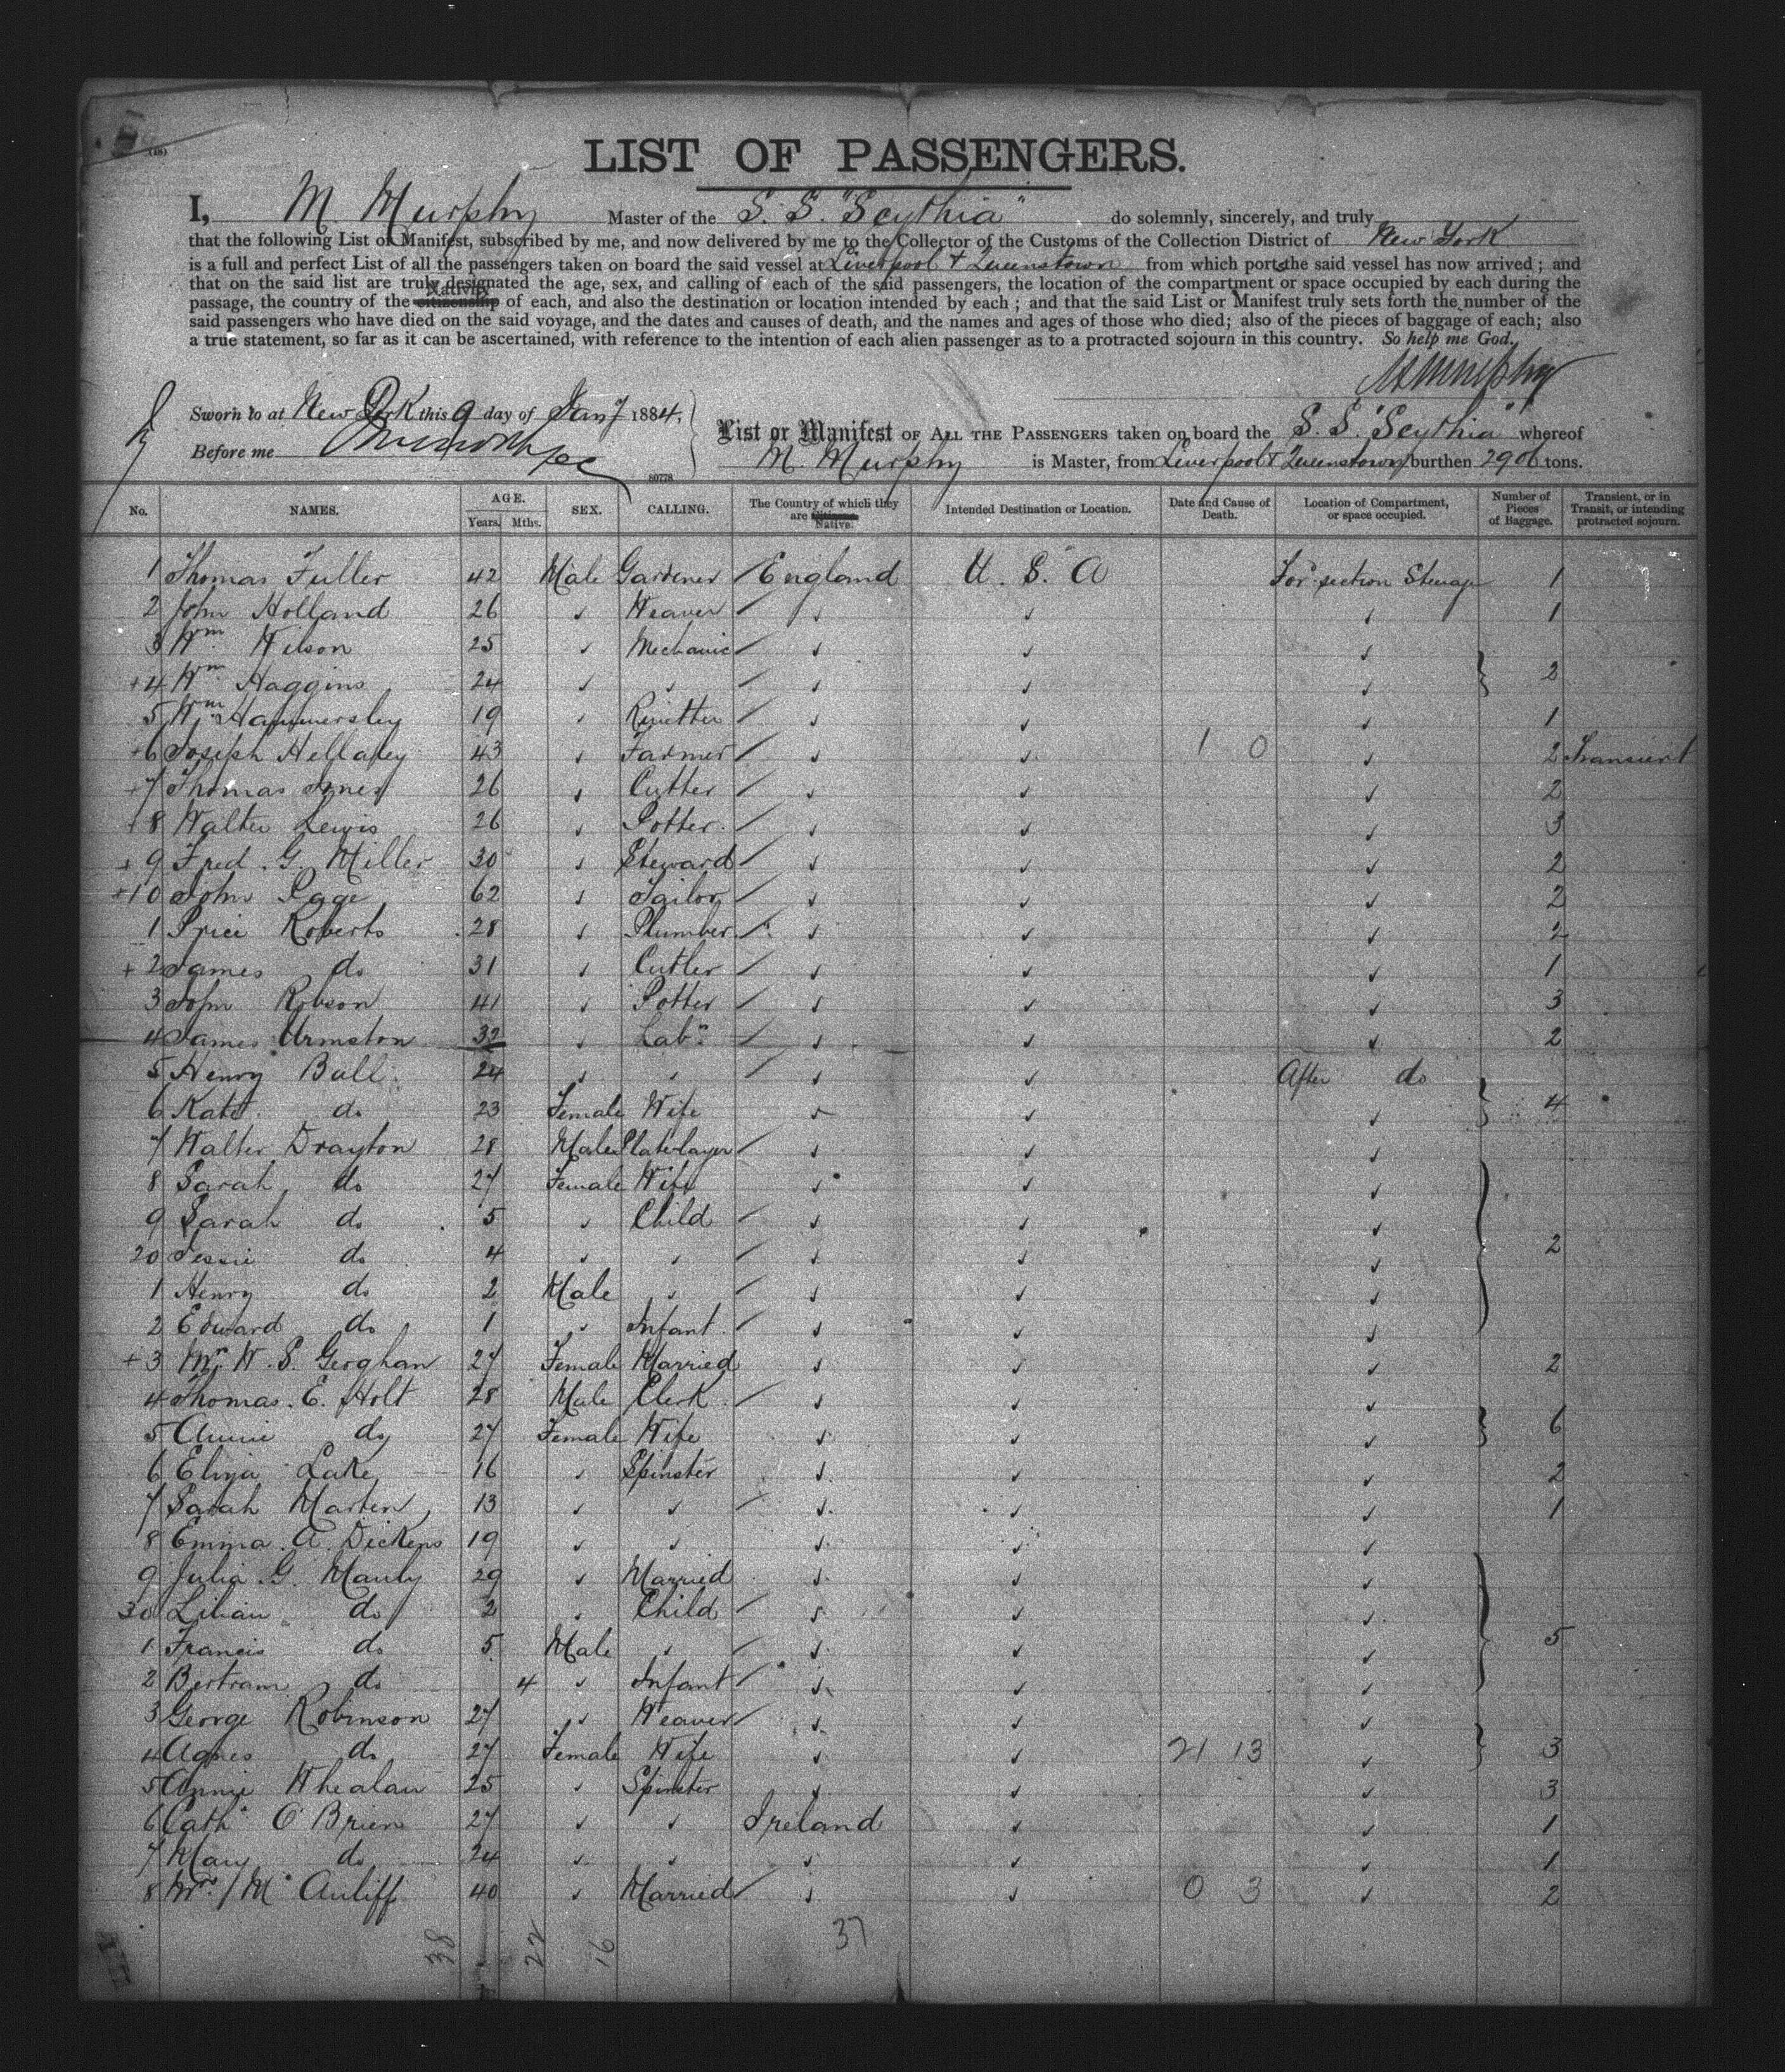 (18)
LIST OF PASSENGERS.
I, M. Murphy Master of the S. S. "Scythia" do solemnly, sincerely, and truly
that the following List or Manifest, subscribed by me, and now delivered by me to the Collector of the Customs of the Collection District of New York
is a full and perfect List of all the passengers taken on board the said vessel at Liverpool & Queenstown from which ports the said vessel has now arrived; and
that on the said list are truly designated the age, sex, and calling of each of the said passengers, the location of the compartment or space occupied by each during the
passage, the country of the citizenship Nativity of each, and also the destination or location intended by each; and that the said List or Manifest truly sets forth the number of the
said passengers who have died on the said voyage, and the dates and causes of death, and the names and ages of those who died; also of the pieces of baggage of each; also
a true statement, so far as it can be ascertained, with reference to the intention of each alien passenger as to a protracted sojourn in this country. So help me God.
M Murphy
Sworn to at New York this 9 day of Jany 1884.
Before me
List or Manifest OF ALL THE PASSENGERS taken on board the S. S. "Scythia" whereof
M. Murphy is Master, from Liverpool & Queenstown burthen 2906 tons.
80778
No. NAMES. AGE. Years. Mths. SEX. CALLING. The Country of which they are Citizens. Native. Intended Destination or Location. Date and Cause of Death. Location of Compartment, or space occupied. Number of Pieces of Baggage. Transient, or in Transit, or intending protracted sojourn.
1 Thomas Fuller 42 Male Gardener England U. S. A For section Steerage 1
2 John Holland 26 Weaver 1
3 Wm Wilson 25 Mechanic
+4 Wm Haggins 24 2
5 Wm Hammersley 19 Rivetter 1
+6 Joseph Hellaley 43 Farmer 1 0 2 Transient
+7 Thomas Jones 26 Cutter 2
+8 Walter Lewis 26 Potter 3
+9 Fred. G. Miller 30 Steward 2
+10 John Page 62 Tailor 2
1 Price Roberts 28 Plumber 2
+2 James do 31 Cutler 1
3 John Robson 41 Potter 3
4 James Urmston 32 Labr 2
5 Henry Ball 24 After do
6 Kate do 23 Female Wife 4
7 Walter Drayton 28 Male Platelayer
8 Sarah do 27 Female Wife
9 Sarah do 5 Child
20 Jessie do 4 2
1 Henry do 2 Male
2 Edward do 1 Infant
+3 Mrs W. S. Geoghan 27 Female Married 2
4 Thomas. E. Holt 28 Male Clerk
5 Annie do 27 Female Wife 6
6 Eliza Lake 16 Spinster 2
7 Sarah Marten 13 1
8 Emma. A. Dickens 19
9 Julia. G. Manly 29 Married
30 Lilian do 2 Child
1 Francis do 5 Male 5
2 Bertram do 4 Infant
3 George Robinson 27 Weaver
4 Agnes do 27 Female Wife 21 13 3
5 Annie Whealan 25 Spinster 3
6 Cath O'Brien 27 Ireland 1
7 Mary do 24 1
8 Mrs Mc Auliff 40 Married 0 3 2
38 22 16 37